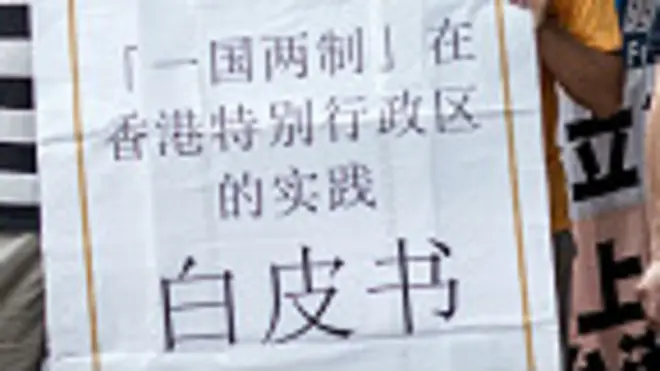 「一国两制」在
香港特别行政区
的实践
白皮书
立
上